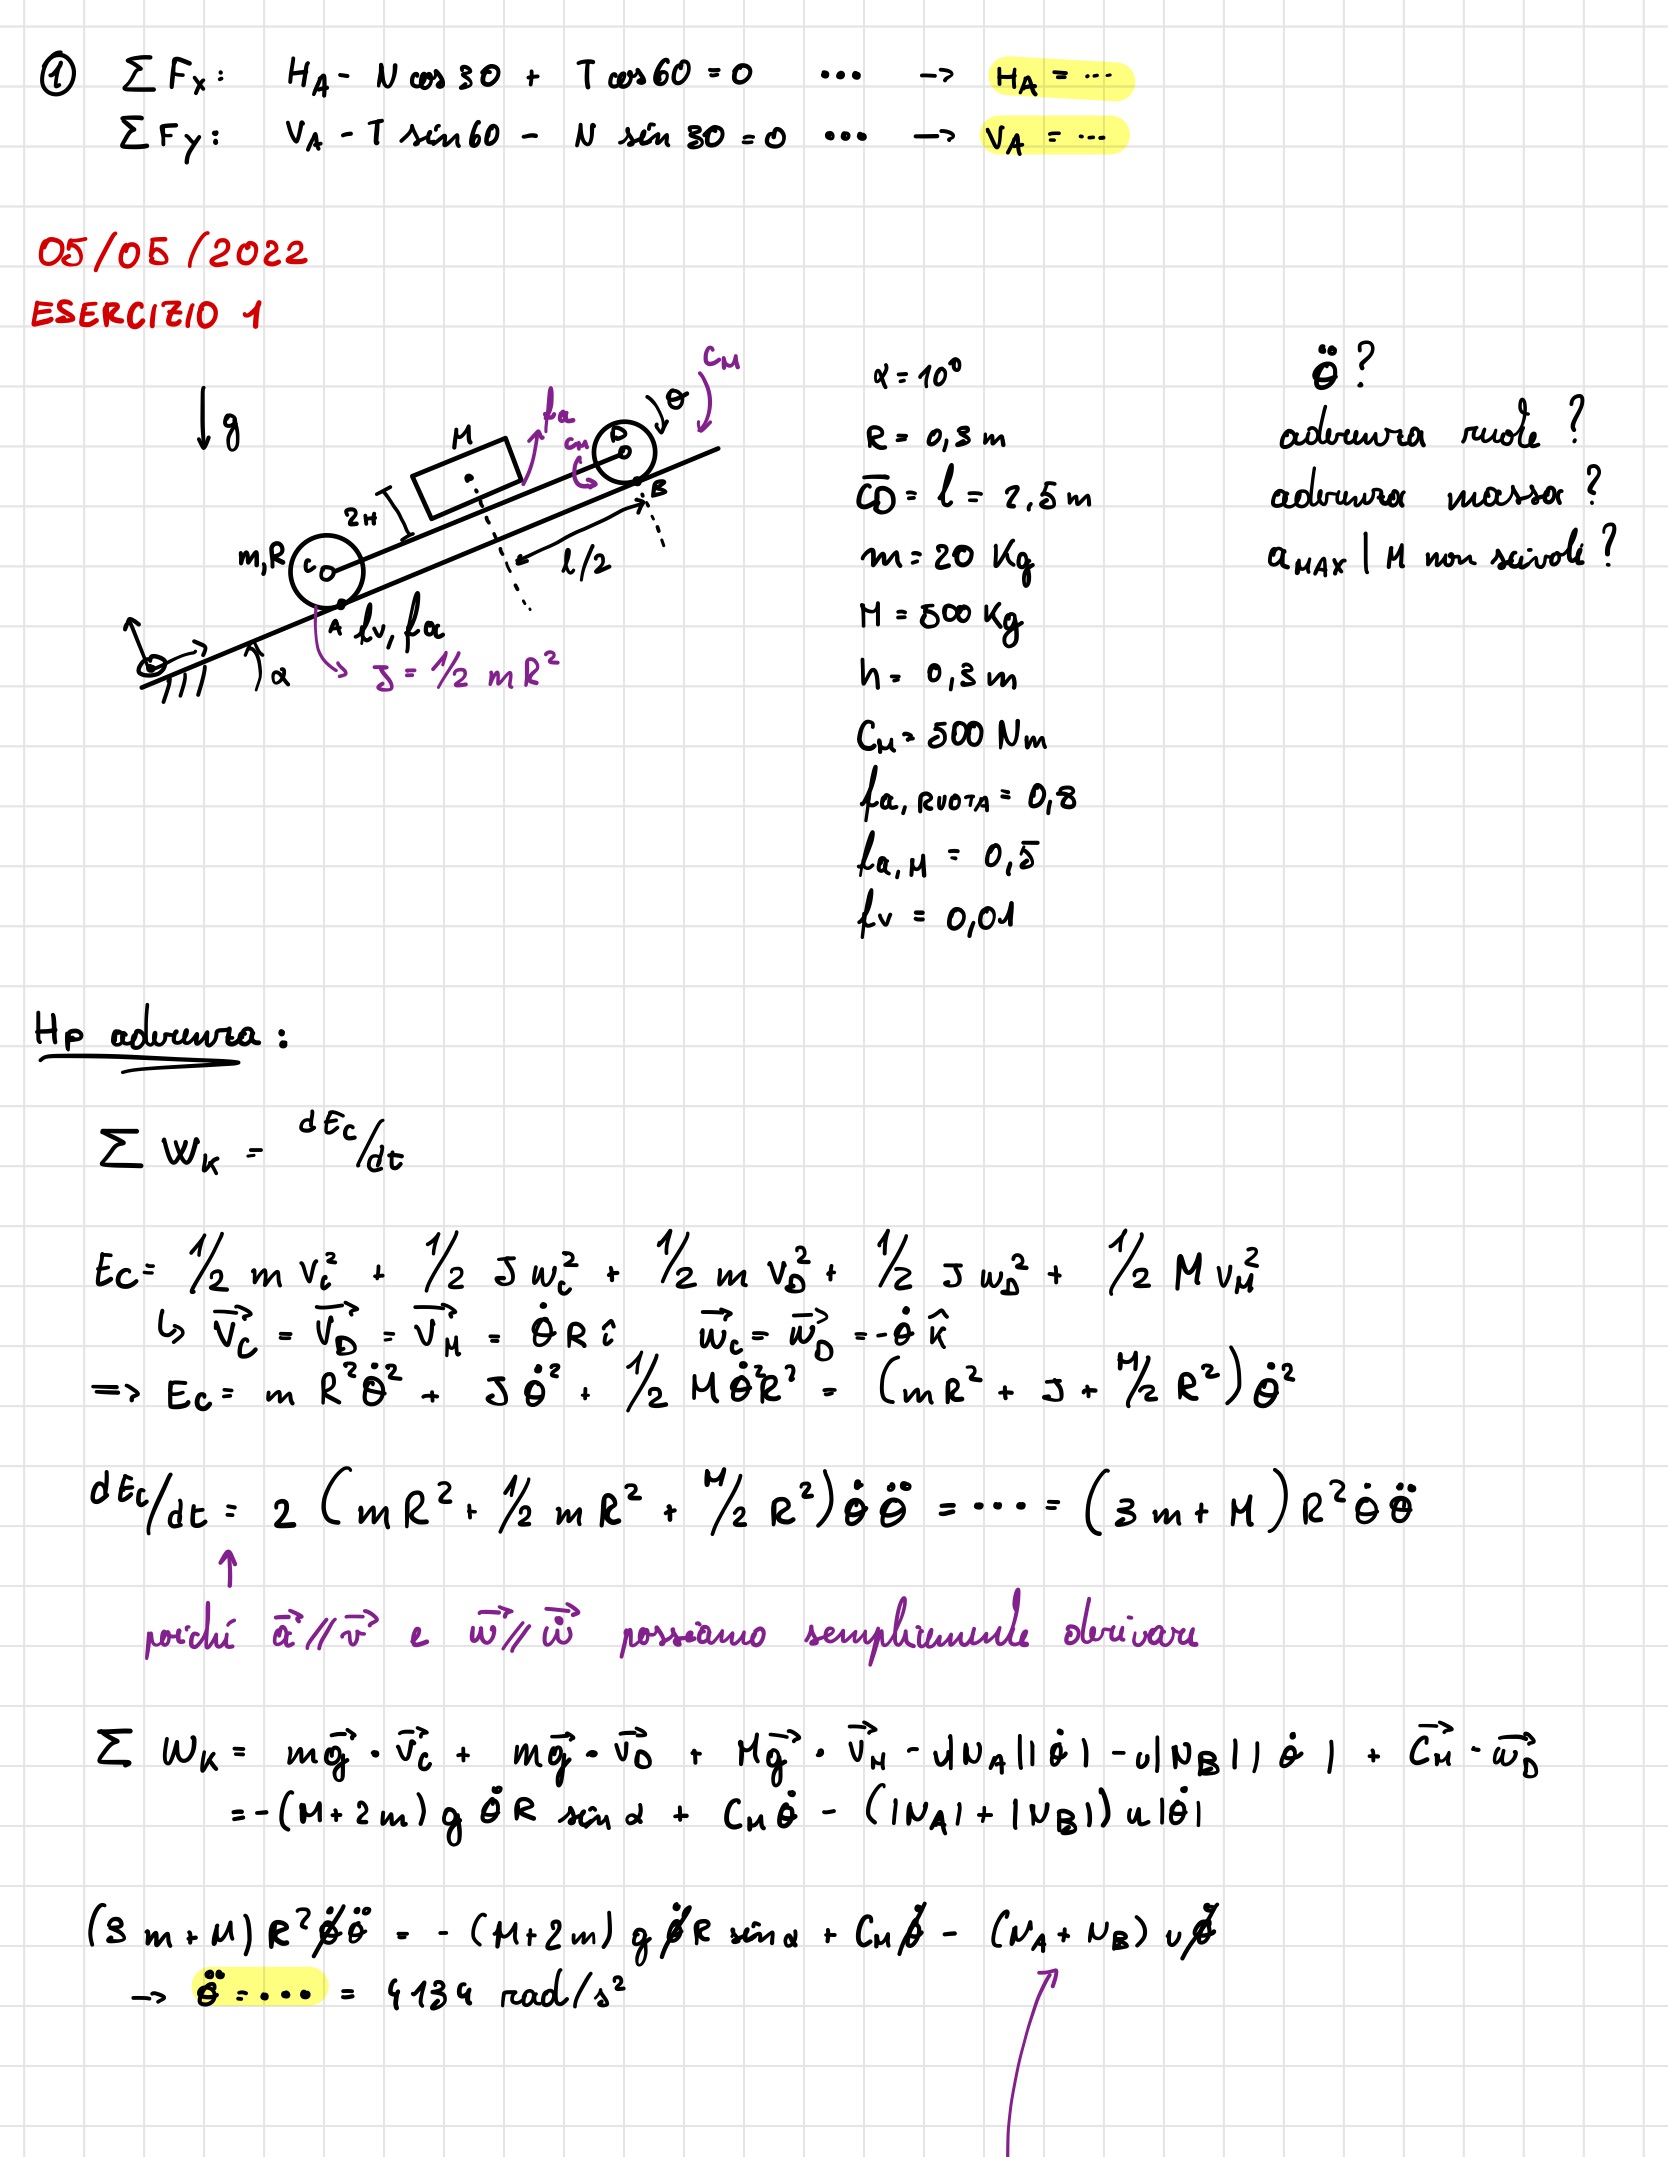 ① ΣFx: HA - N cos 30 + T cos 60 = 0 ... → HA = ...
ΣFy: VA - T sin 60 - N sin 30 = 0 ... → VA = ...
05/05/2022
ESERCIZIO 1
g
M
fa
CM
D
θ
CM
2H
B
l/2
m,R
C
A
fv, fa
α
J = 1/2 mR²
α = 10°
R = 0,3 m
CD = l = 2,5 m
m = 20 Kg
M = 500 Kg
h = 0,3 m
CM = 500 Nm
fa,RUOTA = 0,8
fa,M = 0,5
fv = 0,01
θ̈ ?
aderenza ruote ?
aderenza massa ?
aMAX | M non scivoli ?
Hp aderenza :
ΣWK = dEc/dt
Ec = 1/2 m vc² + 1/2 J wc² + 1/2 m vD² + 1/2 J wD² + 1/2 M vM²
↳ v⃗C = v⃗D = v⃗M = θ̇ R î w⃗c = w⃗D = -θ̇ k̂
=> Ec = m R²θ̇² + J θ̇² + 1/2 M θ̇²R² = (mR² + J + M/2 R²) θ̇²
dEc/dt = 2 (mR² + 1/2 mR² + M/2 R²) θ̇ θ̈ = ... = (3m + M) R² θ̇ θ̈
↑
poiché a⃗ // v⃗ e w⃗ // ẇ⃗ possiamo semplicemente derivare
ΣWK = mg⃗ · v⃗C + mg⃗ · v⃗D + Mg⃗ · v⃗M - u|NA||θ̇| - u|NB||θ̇| + C⃗M · w⃗D
= -(M+2m) g θ̈ R sin α + CM θ̇ - (|NA| + |NB|) u|θ̇|
(3m + M) R² θ̇θ̈ = -(M+2m) g θ̇ R sin α + CM θ̇ - (NA + NB) u θ̇
→ θ̈ = ... = 4,34 rad/s²